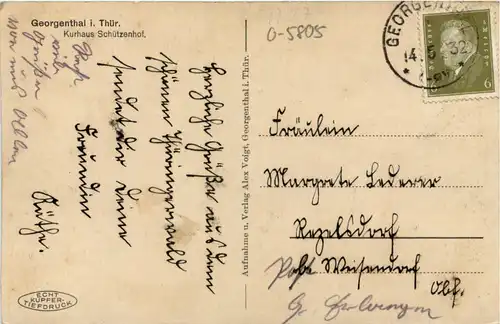 Georgenthal i. Thür.
Kurhaus Schützenhof.
O-5805
GEORGENTHAL
14.5.32
6
Herzliche Grüße aus dem
schönen Thüringerwald
sendet dir deine
Freundin
Käthe.
Auch
Grüßen
von uns Allen
Aufnahme u. Verlag Alex Voigt, Georgenthal i. Thür.
Fräulein
Margrete Lederer
Rezelsdorf
Post Weisendorf
Obf.
b. Erlangen
ECHT
KUPFER-
TIEFDRUCK